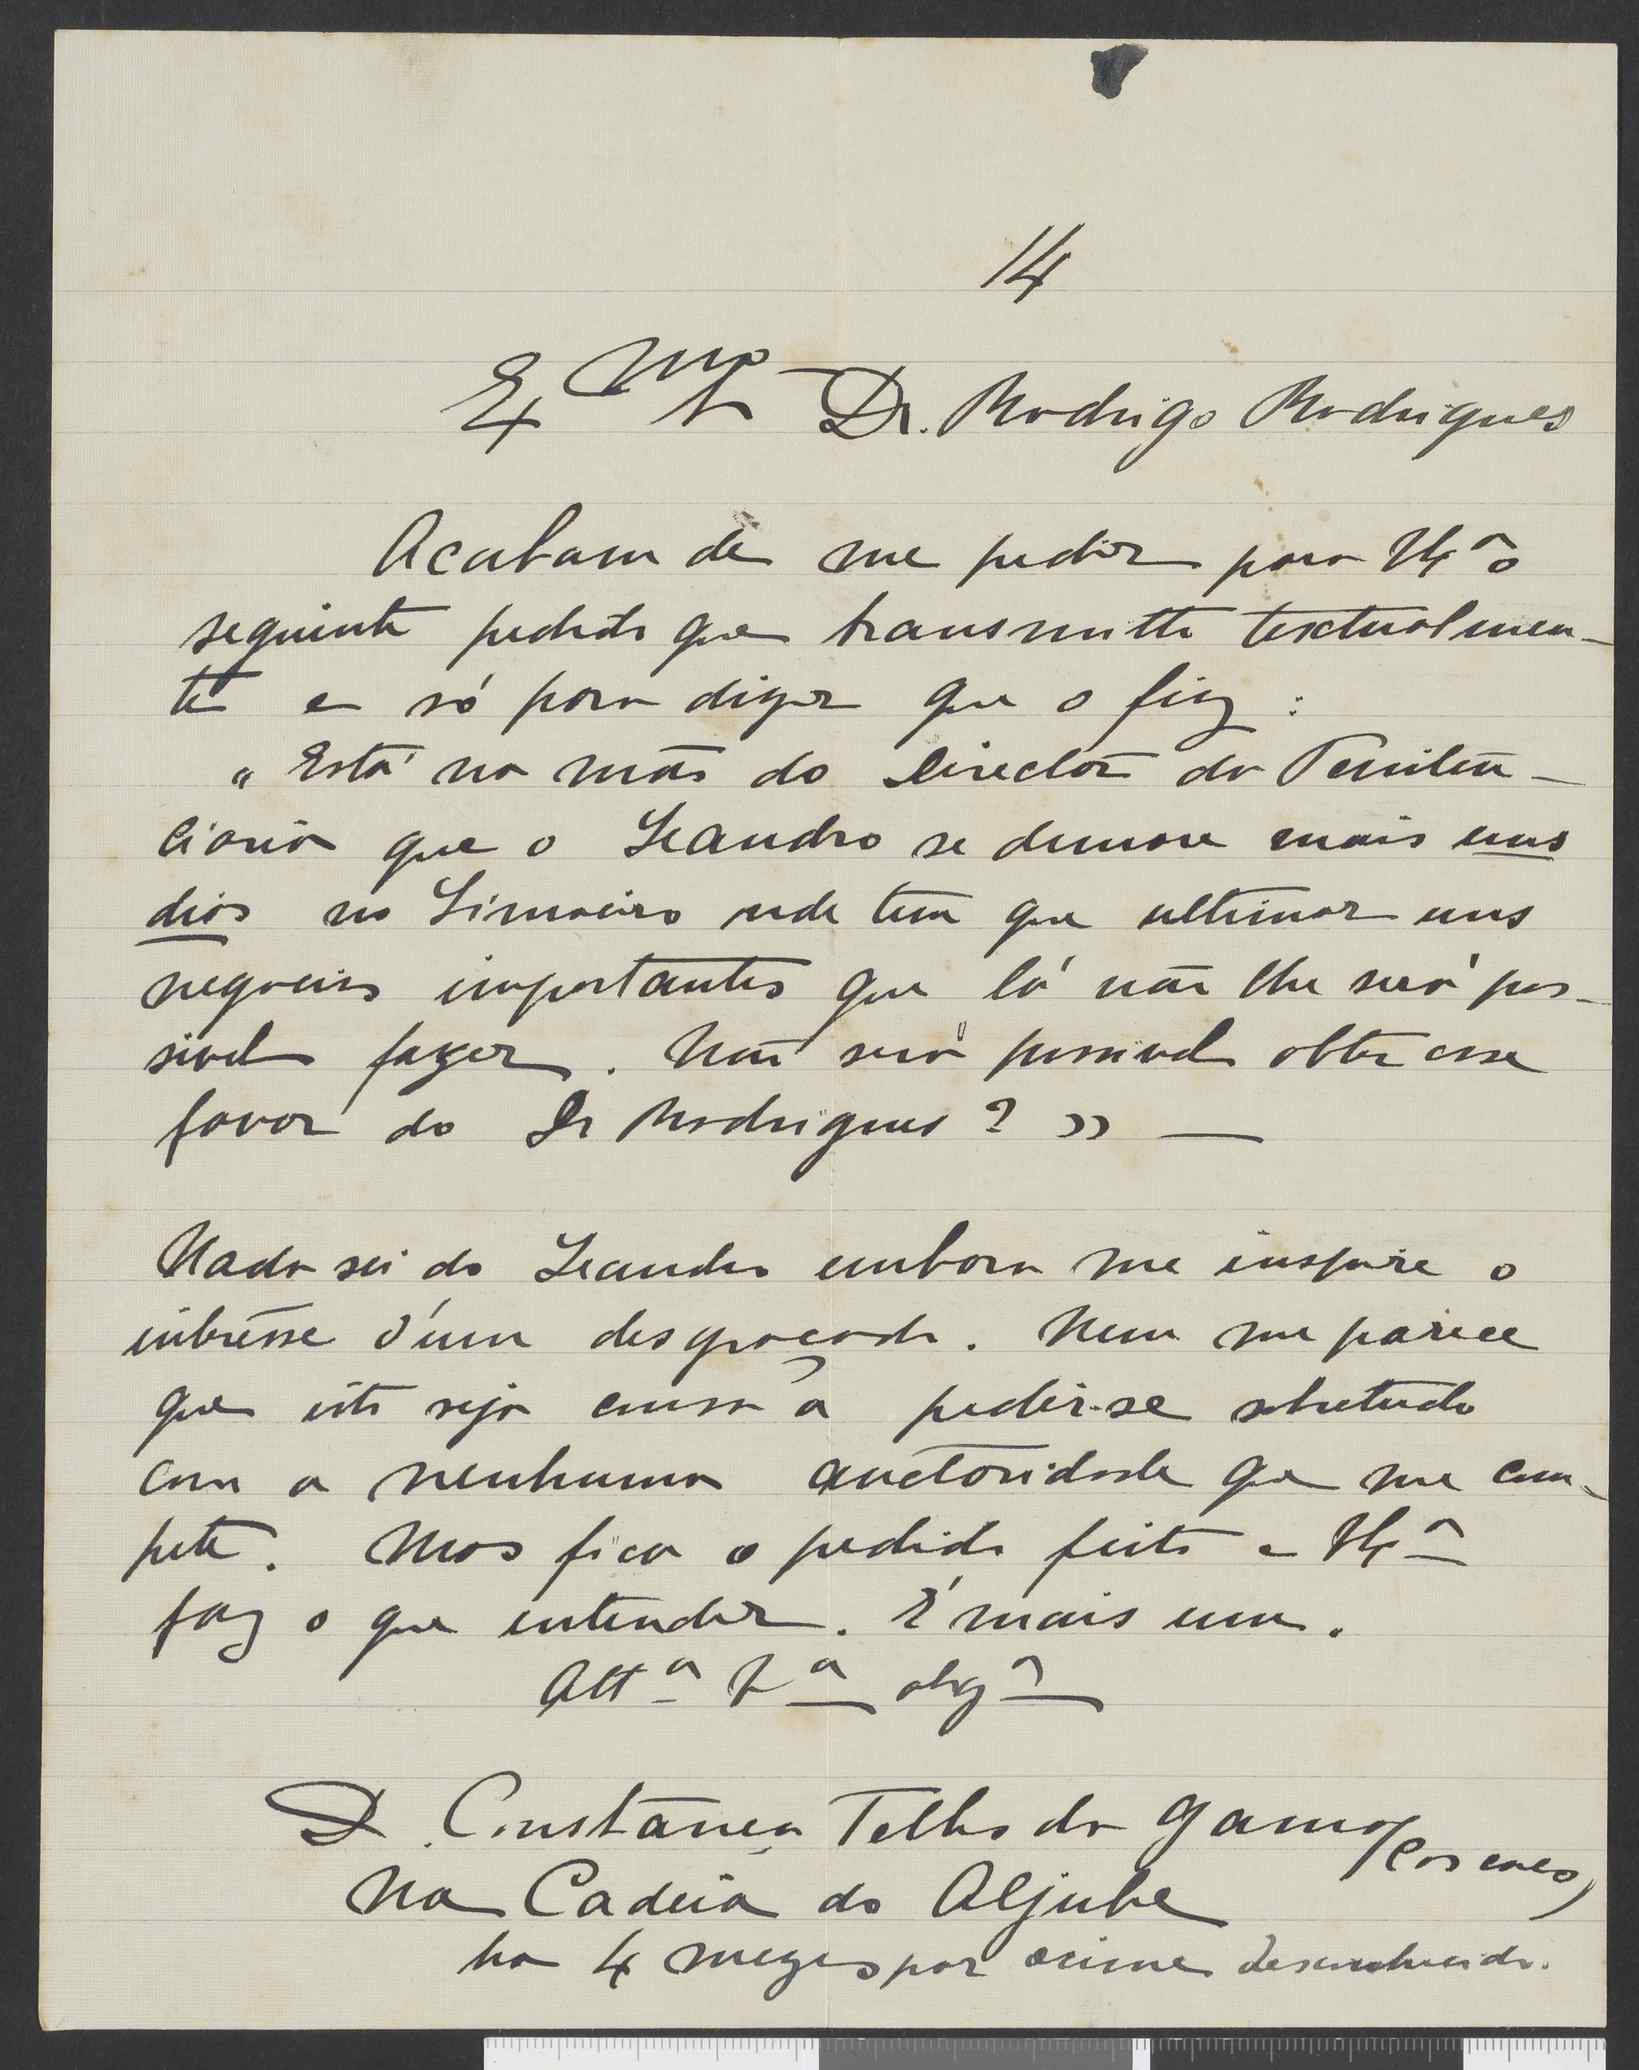 14
Exmo Sr Dr. Rodrigo Rodrigues
Acabam de me pedir para V. Exª o
seguinte pedido que transmitto textualmen-
te e só para dizer que o fiz:
"Está na mão do Director da Peniten-
ciaria que o Leandro se demore mais uns
dias no Limoeiro onde tem que ultimar uns
negocios importantes que lá não lhe será pos-
sivel fazer. Não será possivel obter esse
favor do Dr Rodrigues?" —
Nada sei do Leandro embora me inspire o
interêsse d'um desgraçado. Nem me parece
que isto seja cousa a pedir-se sobretudo
com a nenhuma auctoridade que me com-
pete. Mas fica o pedido feito e V. Exª
faz o que entender. É mais um.
Attª Vª obgª
D. Constança Telles da Gama
(Cascaes)
Na Cadeia do Aljube
ha 4 mezes por crime desconhecido.